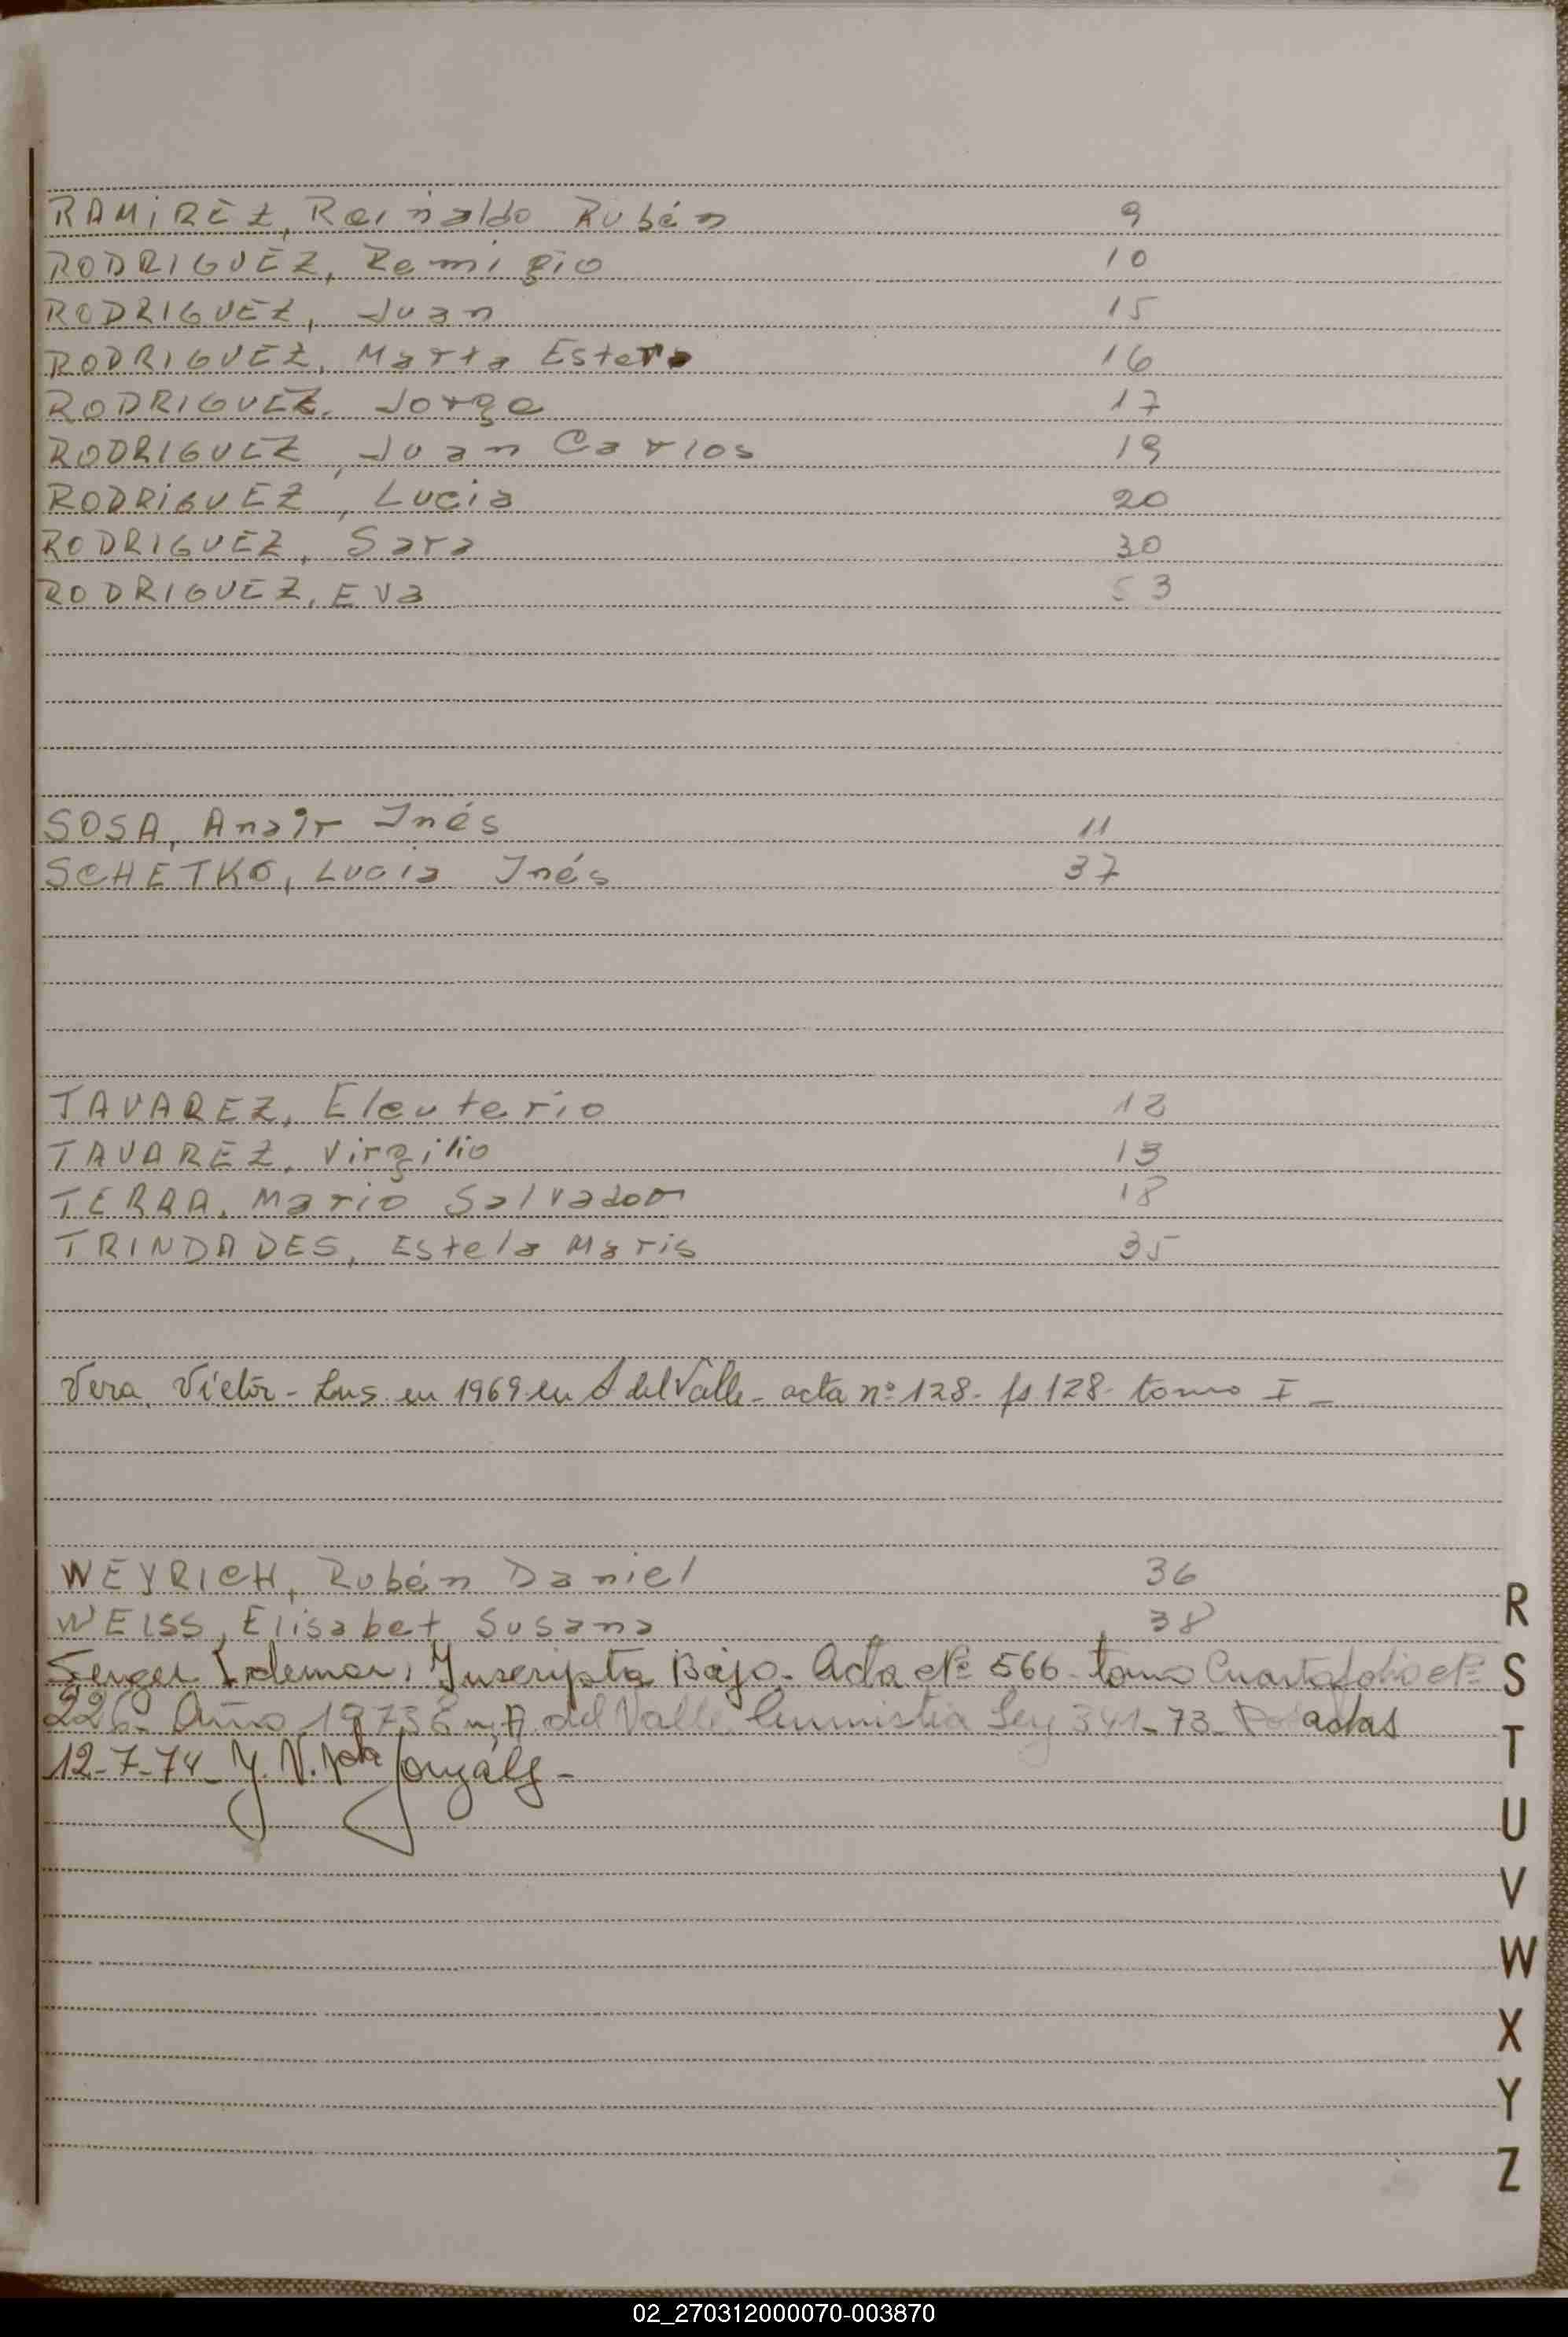 RAMIREZ, Reinaldo Rubén 9
RODRIGUEZ, Remigio 10
RODRIGUEZ, Juan 15
RODRIGUEZ, Marta Ester 16
RODRIGUEZ, Jorge 17
RODRIGUEZ, Juan Carlos 19
RODRIGUEZ, Lucia 20
RODRIGUEZ, Sara 30
RODRIGUEZ, Eva 53
SOSA, Anair Inés 11
SCHETKO, Lucia Inés 37
TAVAREZ, Eleuterio 12
TAVAREZ, Virgilio 13
TERRA, Mario Salvador 18
TRINDADES, Estela Maris 35
Vera, Víctor - Ins. en 1969 en A del Valle - acta nº 128 - fs 128 - tomo I -
WEYRICH, Rubén Daniel 36
WEISS, Elisabet Susana 38
Inscripta Bajo - Acta Nº 566 - tomo Cuarto folio Nº
226 - Año 1973 En A. del Valle Ley 341-73 - actas
12-7-74 - González -
R
S
T
U
V
W
X
Y
Z
02_270312000070-003870